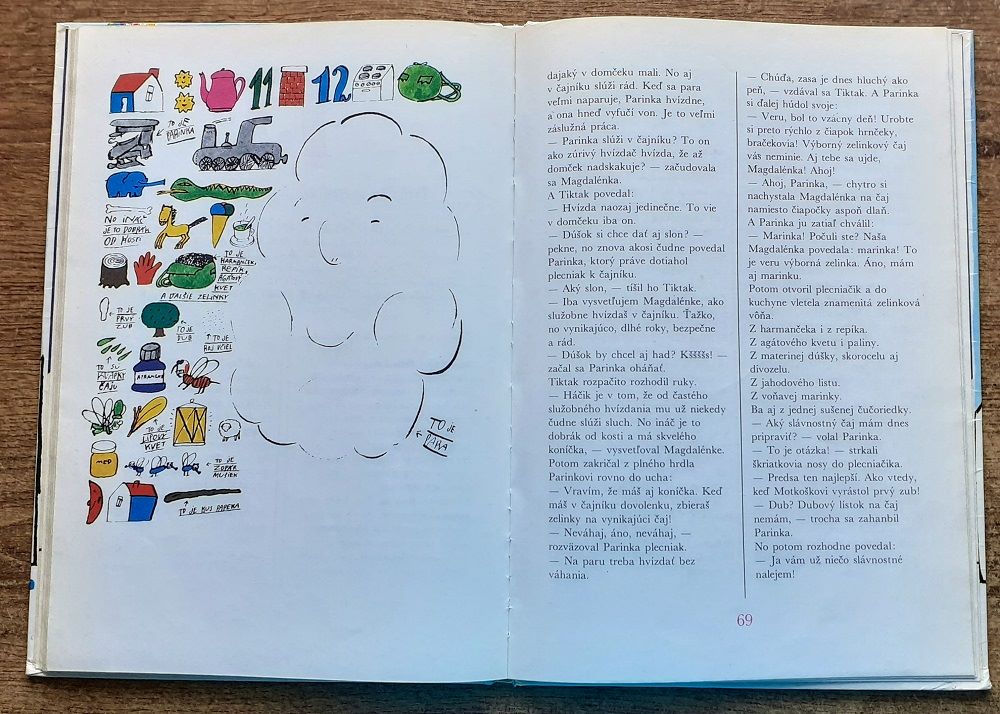 11
12
TO JE
PARINKA
NO INÁČ
JE TO DOBRÁK
OD KOSTI
TO JE
HARMANČEK,
REPÍK,
AGÁTOVÝ
KVET
A ĎALŠIE ZELINKY
TO JE
PRVÝ
ZUB
TO JE
DUB
TO JE
ROJ VČIEL
TO SÚ
KVAPKY
ČAJU
TO JE
LIPOVÝ
KVET
MED
TO JE
ZOPÁR
MUŠIEK
TO JE KUS
TO JE
PARA
dajaký v domčeku mali. No aj
v čajníku slúži rád. Keď sa para
veľmi naparuje, Parinka hvízdne,
a ona hneď vyfučí von. Je to veľmi
záslužná práca.
— Parinka slúži v čajníku? To on
ako zúrivý hvízdač hvízda, že až
domček nadskakuje? — začudovala
sa Magdalénka.
A Tiktak povedal:
— Hvízda naozaj jedinečne. To vie
v domčeku iba on.
— Dúšok si chce dať aj slon? —
pekne, no znova akosi čudne povedal
Parinka, ktorý práve dotiahol
plecniak k čajníku.
— Aký slon, — tíšil ho Tiktak.
— Iba vysvetľujem Magdalénke, ako
služobne hvízdaš v čajníku. Ťažko,
no vynikajúco, dlhé roky, bezpečne
a rád.
— Dúšok by chcel aj had? Kšššš! —
začal sa Parinka oháňať.
Tiktak rozpačito rozhodil ruky.
— Háčik je v tom, že od častého
služobného hvízdania mu už niekedy
čudne slúži sluch. No ináč je to
dobrák od kosti a má skvelého
koníčka, — vysvetľoval Magdalénke.
Potom zakričal z plného hrdla
Parinkovi rovno do ucha:
— Vravím, že máš aj koníčka. Keď
máš v čajníku dovolenku, zbieraš
zelinky na vynikajúci čaj!
— Neváhaj, áno, neváhaj, —
rozväzoval Parinka plecniak.
— Na paru treba hvízdať bez
váhania.
— Chúďa, zasa je dnes hluchý ako
peň, — vzdával sa Tiktak. A Parinka
si ďalej húdol svoje:
— Veru, bol to vzácny deň! Urobte
si preto rýchlo z čiapok hrnčeky,
bračekovia! Výborný zelinkový čaj
vás neminie. Aj tebe sa ujde,
Magdalénka! Ahoj!
— Ahoj, Parinka, — chytro si
nachystala Magdalénka na čaj
namiesto čiapočky aspoň dlaň.
A Parinka ju zatiaľ chválil:
— Marinka! Počuli ste? Naša
Magdalénka povedala: marinka! To
je veru výborná zelinka. Áno, mám
aj marinku.
Potom otvoril plecniačik a do
kuchyne vletela znamenitá zelinková
vôňa.
Z harmančeka i z repíka.
Z agátového kvetu i paliny.
Z materinej dúšky, skorocelu aj
divozelu.
Z jahodového listu.
Z voňavej marinky.
Ba aj z jednej sušenej čučoriedky.
— Aký slávnostný čaj mám dnes
pripraviť? — volal Parinka.
— To je otázka! — strkali
škriatkovia nosy do plecniačika.
— Predsa ten najlepší. Ako vtedy,
keď Motkoškovi vyrástol prvý zub!
— Dub? Dubový lístok na čaj
nemám, — trocha sa zahanbil
Parinka.
No potom rozhodne povedal:
— Ja vám už niečo slávnostné
nalejem!
69